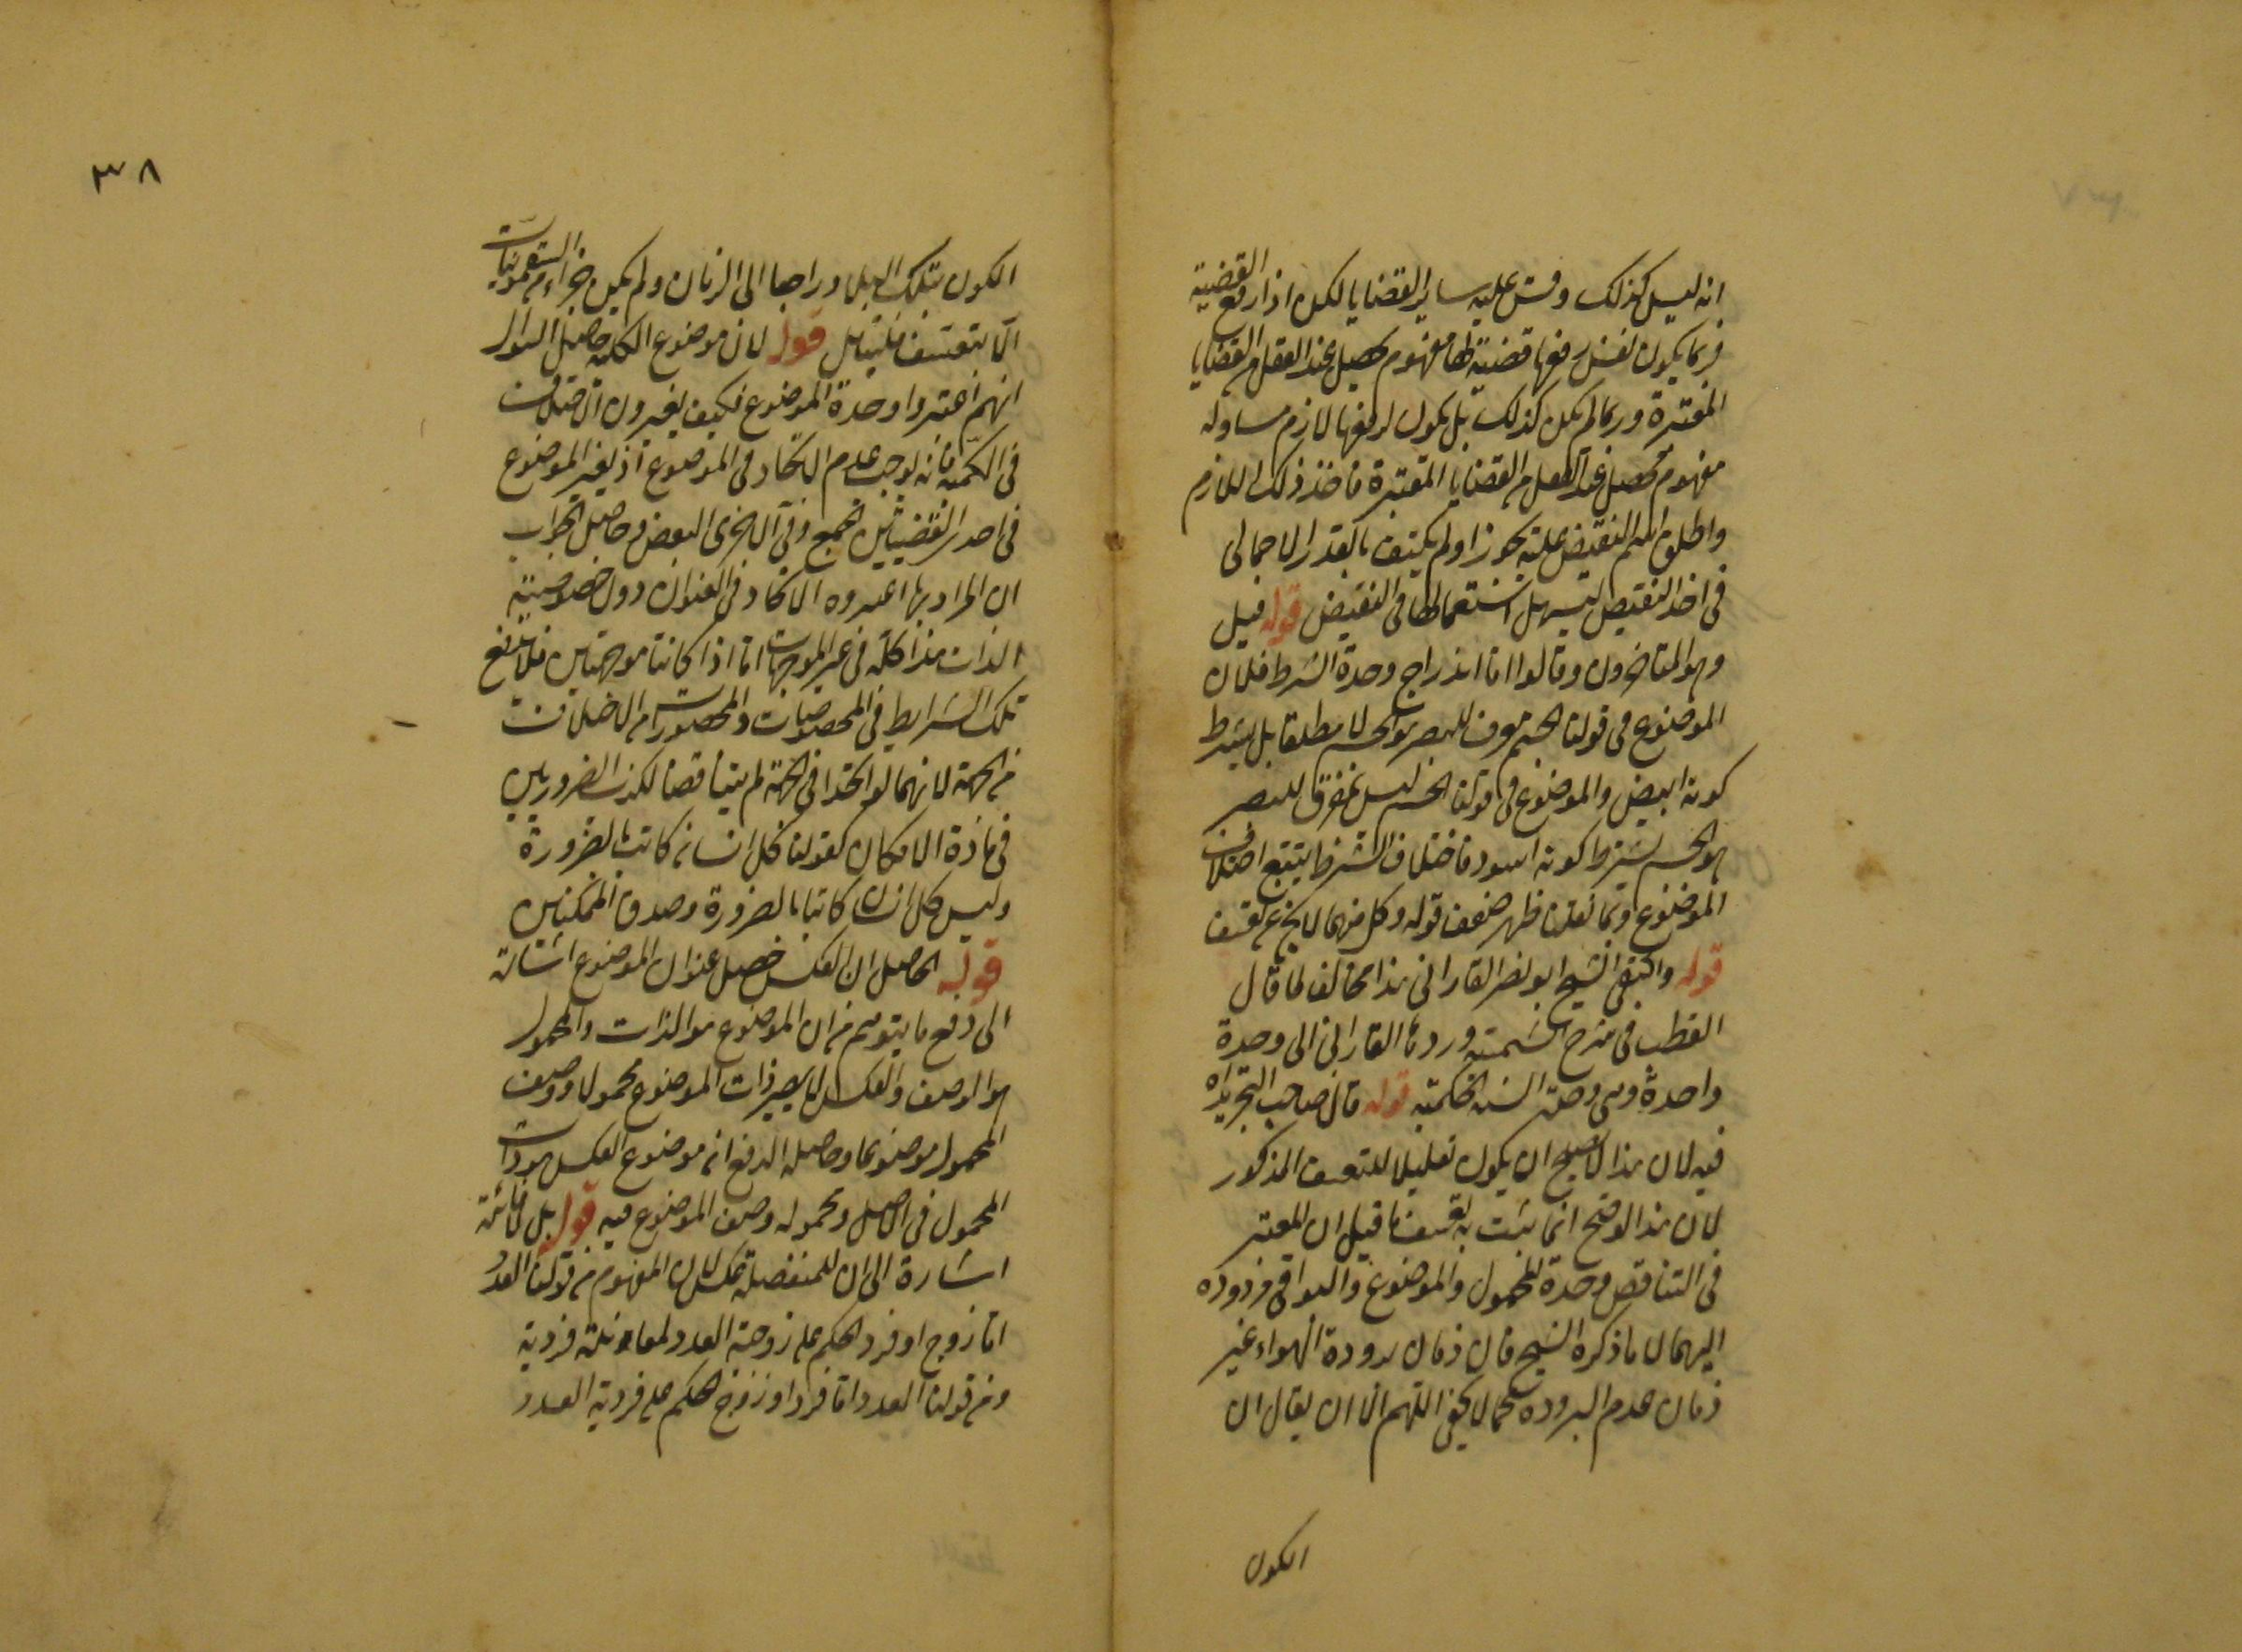 انه ليس كذلك وقس عليه ساير القضايا لكن اذا رفع القضية
فربما يكون نفس رفعها قضية لها مفهوم محصل عند العقل من القضايا
المعتبرة وربما لم يكن كذلك بل يكون لرفعها لازم مساو له
مفهوم محصل عند العقل من القضايا المعتبرة فاخذ ذلك اللازم
واطلق اسم النقيض عليه تجوزا ولم يكتف بالقدر الاجمالى
فى اخذ النقيض ليسهل استعمالها فى النقيض قوله قيل
وهو المتاخرون وقالوا اما اندراج وحدة الشرط فلان
الموضوع فى قولنا الجسم مفرق للبصر هو الجسم لا مطلقا بل بشرط
كونه ابيض والموضوع فى قولنا الجسم ليس بمفرق للبصر
هو الجسم بشرط كونه اسود فاختلاف الشرط يتبع اختلاف
الموضوع وبما نقلنا ظهر ضعف قوله وكل منهما لا يخ عن تعسف
قوله واكتفى الشيخ ابو نصر الفارابى هذا مخالف لما قال
القطب فى شرح الشمسية وردها الفارابى الى وحدة
واحدة وهى وحدة النسبة الحكمية قوله قال صاحب التجريد اه
فيه لان هذا لا يصلح ان يكون تعليلا للتعسف المذكور
لان هذا الوضح انما يثبت به تعسف ما قيل ان المعتبر
فى التناقض وحدة المحمول والموضوع والبواقى مردوده
اليهما لا ما ذكره الشيخ فان زمان برودة الهواء غير
زمان عدم البرودة كما لا يخفى اللهم الا ان يقال ان
الكون
٣٨
الكون بتلك البلاد راجعا الى الزمان ولم يكن جزاء من التقويمات
الا بتعسف فليتامل قوله لان موضوع الكلية حاصل السوال
انهم اعتبروا وحدة الموضوع فكيف يعتبرون الاختلاف
فى الكمية فانه يوجب عدم الاتحاد فى الموضوع اذ يصير الموضوع
فى احدى القضيتين الجميع وفى الاخرى البعض وحاصل الجواب
ان المراد بما اعتبروه الاتحاد فى العنوان دون خصوصية
الذات هذا كله فى غير الموجهات اما اذا كانتا موجهتين فلا بد مع
تلك الشرايط فى المخصوصات والمحصورات من الاختلاف
فى الجهة لانهما لو اتحدا فى الجهة لم يتناقضا لكذب الضروريين
فى مادة الامكان كقولنا كل انسان كاتب بالضرورة
وليس كل انسان كاتبا بالضرورة وصدق الممكنتين
قوله الحاصل ان العكس تحصيل عنوان الموضوع اشارة
الى دفع ما يتوهم من ان الموضوع هو الذات والمحمول
هو الوصف والعكس لا يصير ذات الموضوع محمولا ووصف
المحمول موضوعا وحاصل الدفع انه موضوع العكس هو ذات
المحمول فى الاصل ومحموله وصف الموضوع فيه قوله بل فائدته
اشارة الى ان للمنفصلة عكسا لان المفهوم من قولنا العدد
اما زوج او فرد الحكم على زوجية العدد لمعاندته فردية
ومن قولنا العدد اما فرد او زوج الحكم على فردية العدد